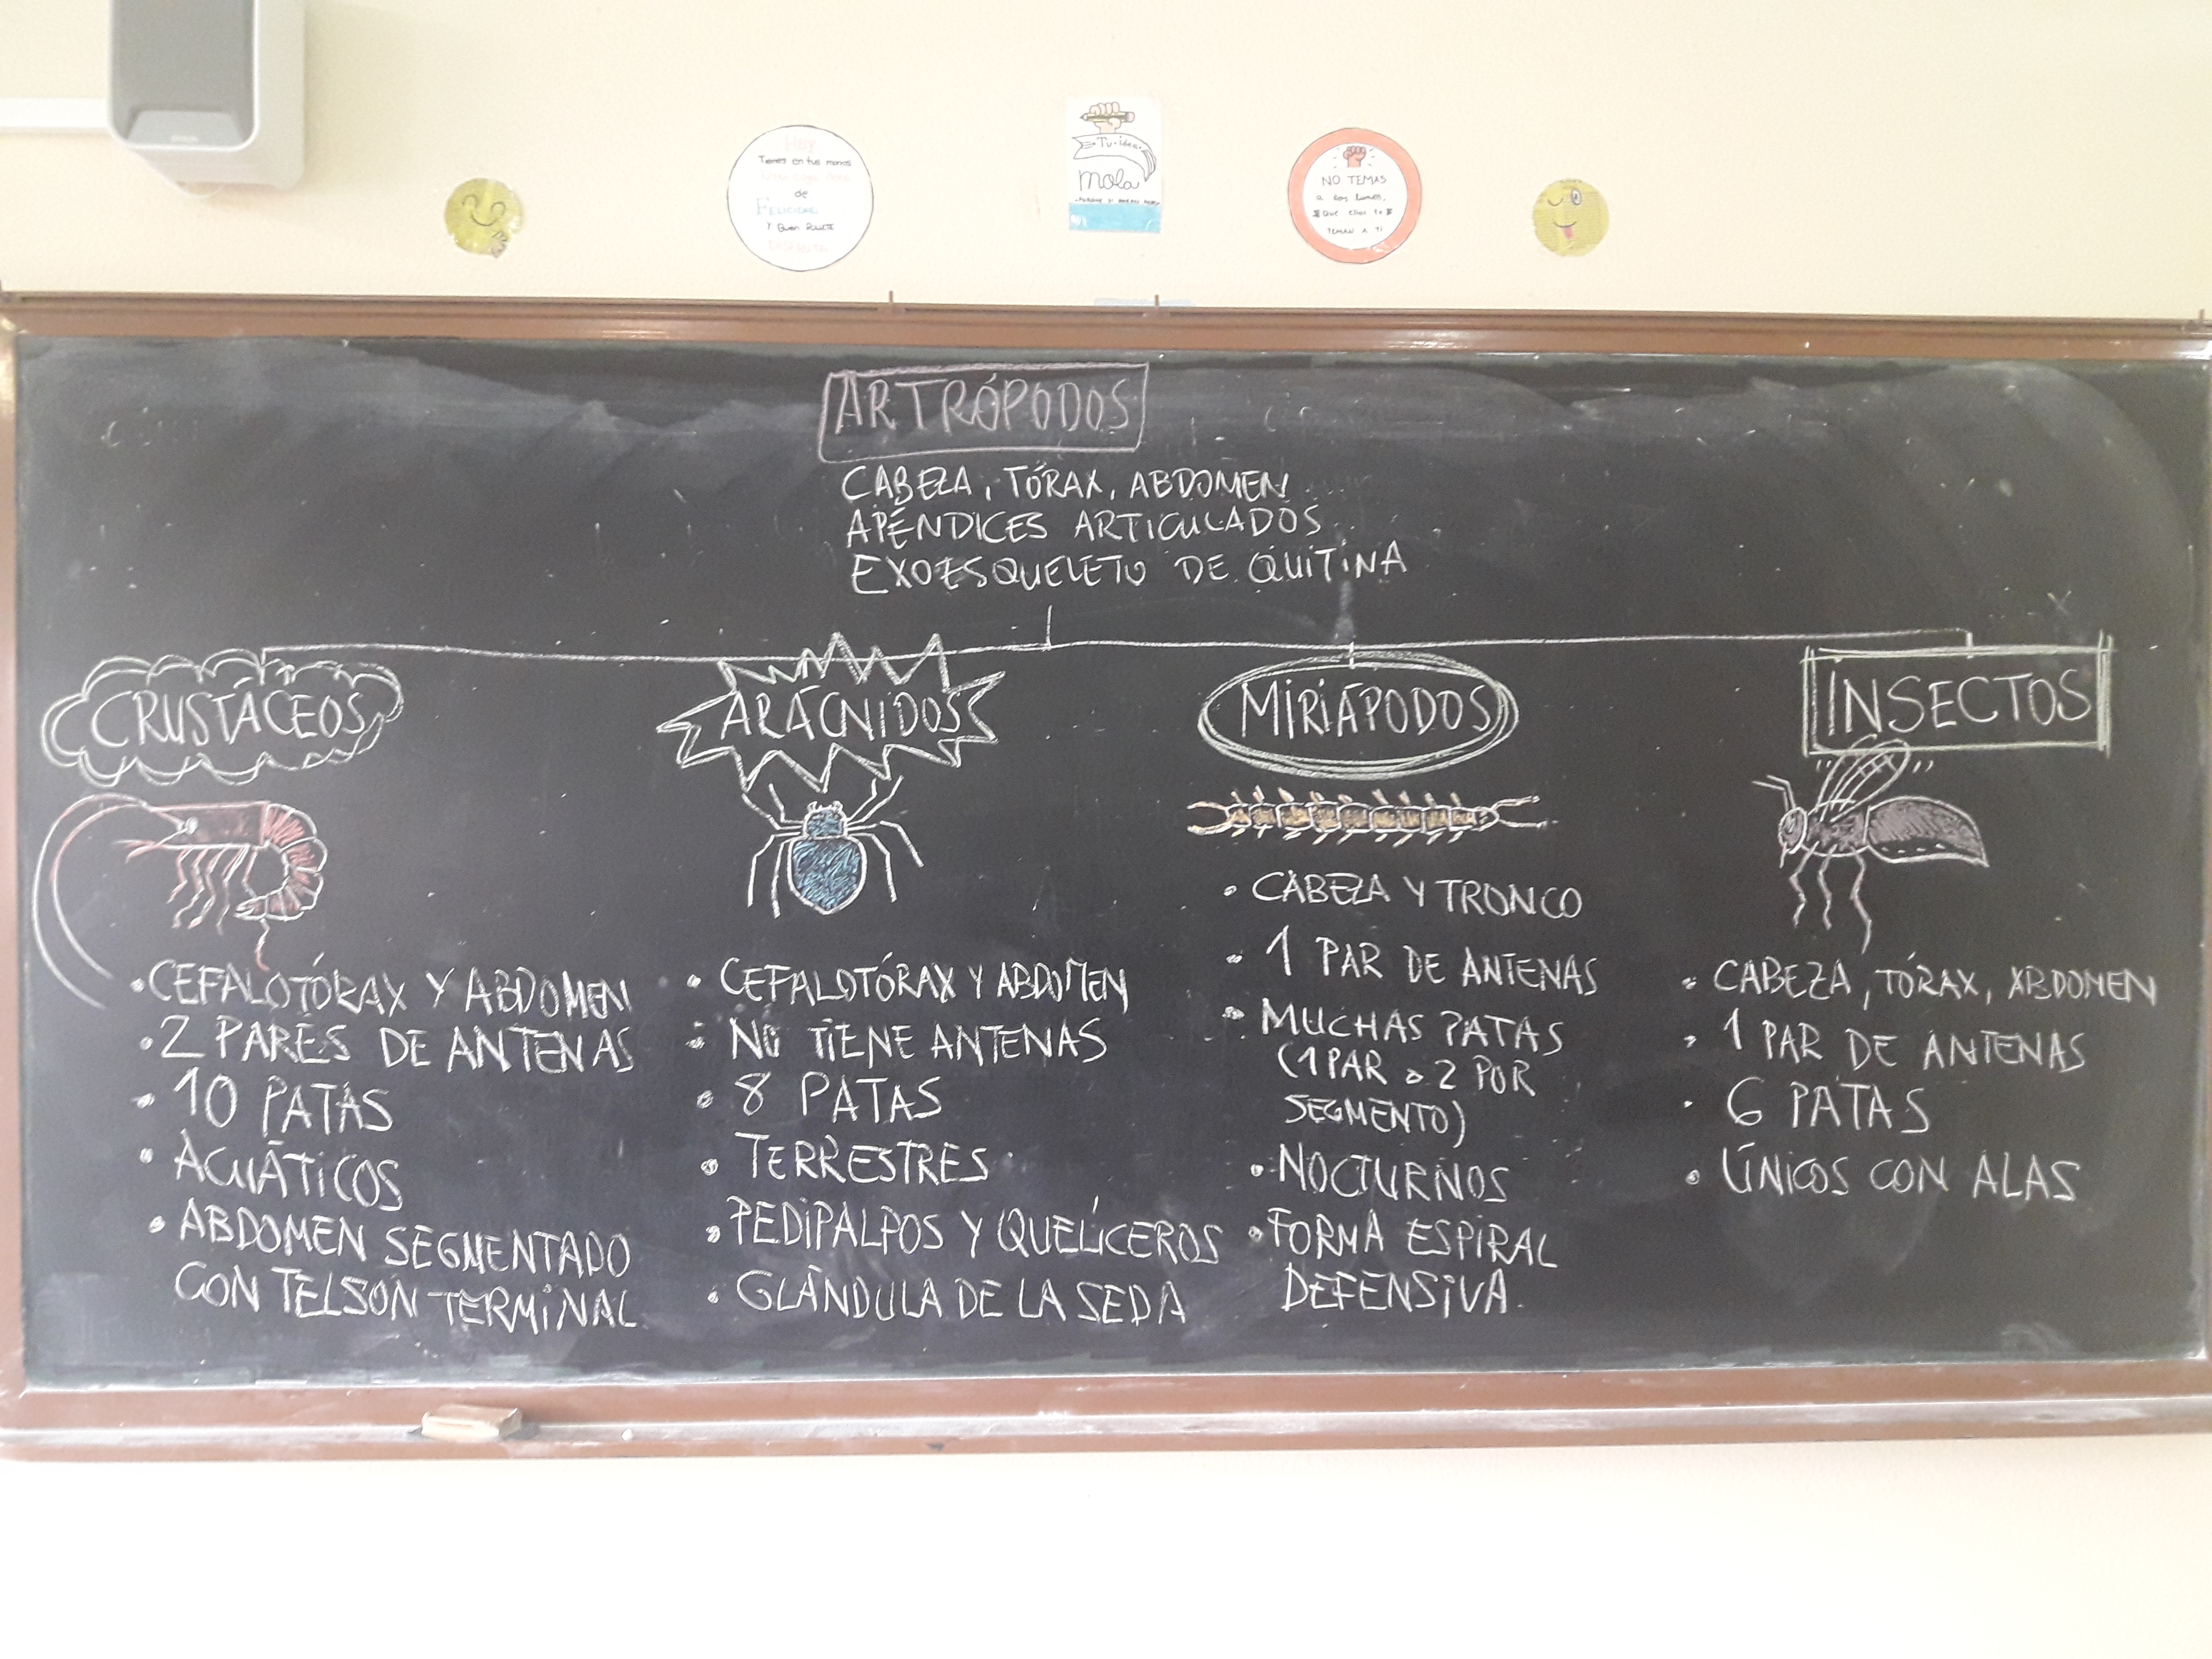 Hoy
Tienes en tus manos
de
FELICIDAD
Y Quien DECIDE
Tu idea
mola
NO TEMAS
a los lunes,
Que ellos te
TEMAN A TI
ARTRÓPODOS
CABEZA, TÓRAX, ABDOMEN
APÉNDICES ARTICULADOS
EXOESQUELETO DE QUITINA
CRUSTÁCEOS
• CEFALOTÓRAX Y ABDOMEN
• 2 PARES DE ANTENAS
• 10 PATAS
• ACUÁTICOS
• ABDOMEN SEGMENTADO
CON TELSON TERMINAL
ARÁCNIDOS
• CEFALOTÓRAX Y ABDOMEN
• NO TIENE ANTENAS
• 8 PATAS
• TERRESTRES
• PEDIPALPOS Y QUELÍCEROS
• GLÁNDULA DE LA SEDA
MIRIÁPODOS
• CABEZA Y TRONCO
• 1 PAR DE ANTENAS
• MUCHAS PATAS
(1 PAR o 2 POR
SEGMENTO)
• NOCTURNOS
• FORMA ESPIRAL
DEFENSIVA.
INSECTOS
• CABEZA, TÓRAX, ABDOMEN
• 1 PAR DE ANTENAS
• 6 PATAS
• ÚNICOS CON ALAS